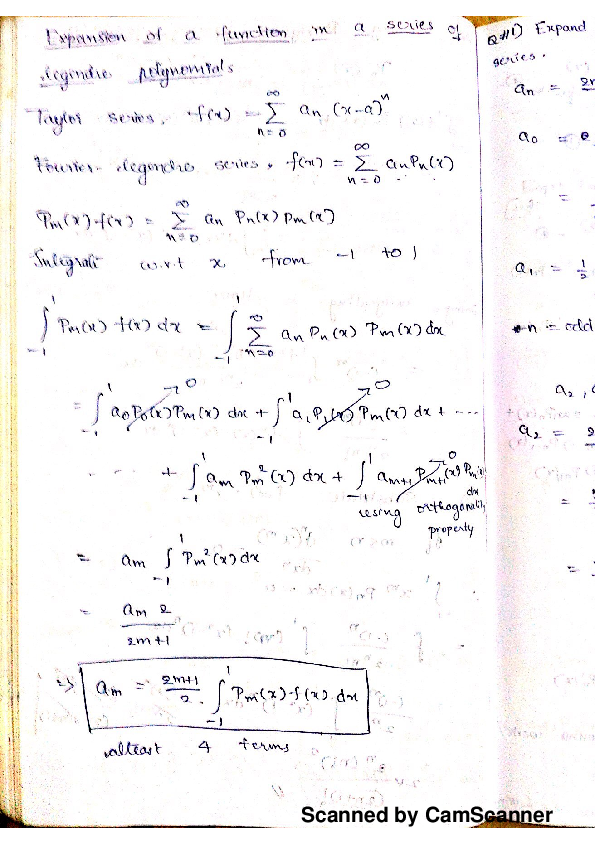 Expansion of a function in a series of
legendre polynomials
Taylor series, f(x) = ∞ Σ n=0 an (x-a)^n
Fourier-legendre series, f(x) = ∞ Σ n=0 an Pn(x)
Pm(x)·f(x) = ∞ Σ n=0 an Pn(x) Pm(x)
Integrate w.r.t x from -1 to 1
∫_-1^1 Pm(x) f(x) dx = ∫_-1^1 ∞ Σ n=0 an Pn(x) Pm(x) dx
= ∫_-1^1 a0 P0(x) Pm(x) dx → 0 + ∫_-1^1 a1 P1(x) Pm(x) dx → 0 + ...
... + ∫_-1^1 am Pm²(x) dx + ∫_-1^1 am+1 Pm+1(x) Pm(x) dx → 0
using orthogonality
property
= am ∫_-1^1 Pm²(x) dx
= am 2 / 2m+1
=> am = 2m+1 / 2 · ∫_-1^1 Pm(x)·f(x) dx
atleast 4 terms
Q#1) Expand
series.
an =
a0 =
=
a1 = 1/2
n = odd
a2,
a2 =
=
=
Scanned by CamScanner